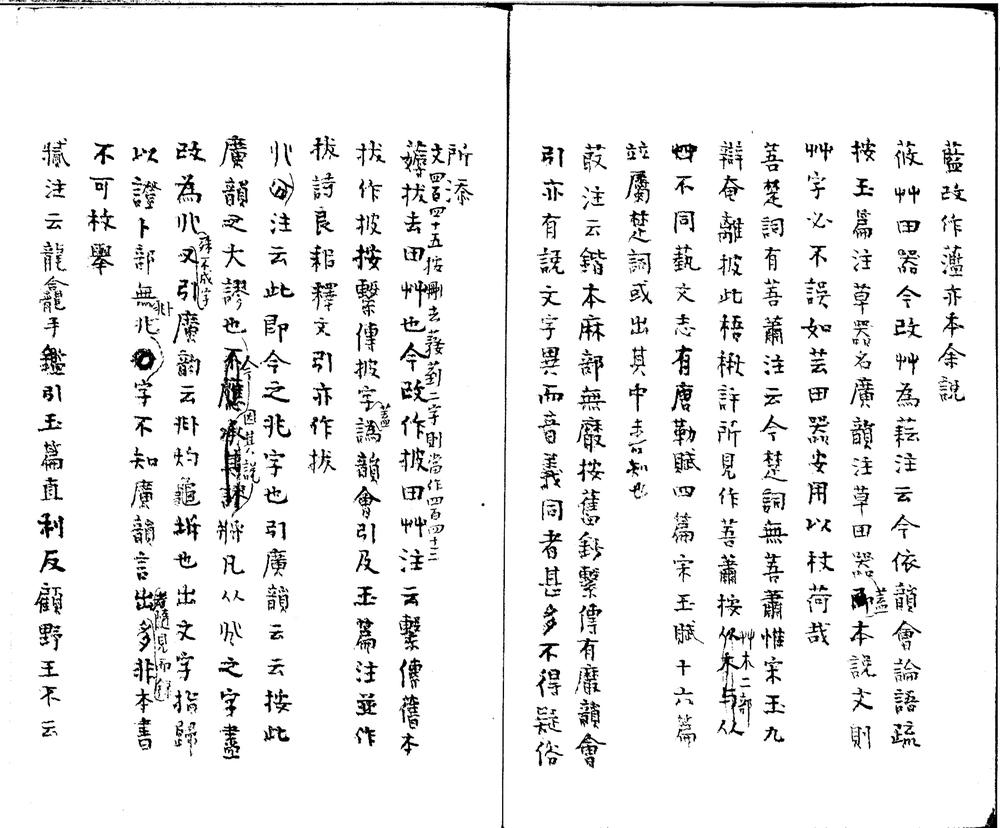 藍改作薀亦本余説
莜艸田器今改艸為耘注云今依韻會論語疏
按玉篇注草器名廣韻注草田器蓋本説文則
艸字必不誤如芸田器安用以杖荷哉
菩楚詞有菩蕭注云今楚詞無菩蕭惟宋玉九
辯奄離披此梧楸許所見作菩蕭按艸木二部
四不同藝文志有唐勒賦四篇宋玉賦十六篇
竝屬楚詞或出其中未可知也
菆注云鍇本麻部無黀按舊鈔繫傳有黀韻會
引亦有説文字異而音義同者甚多不得疑俗
所添
文四百四十五按刪去二字則當作四百四十三
薅拔去田艸也今改作披田艸注云繫傳舊本
拔作披按繫傳披字蓋譌韻會引及玉篇注並作
拔詩良耜釋文引亦作拔
兆分注云此即今之兆字也引廣韻云云按此
廣韻之大謬也今因其説將凡从兆之字盡
改為兆殊不成字又引廣韵云灼龜坼也出文字指歸
以證卜部無兆字不知廣韻言出者隨見而多非本書
不可枚舉
注云龍龕手鑑引玉篇直利反顧野王不云